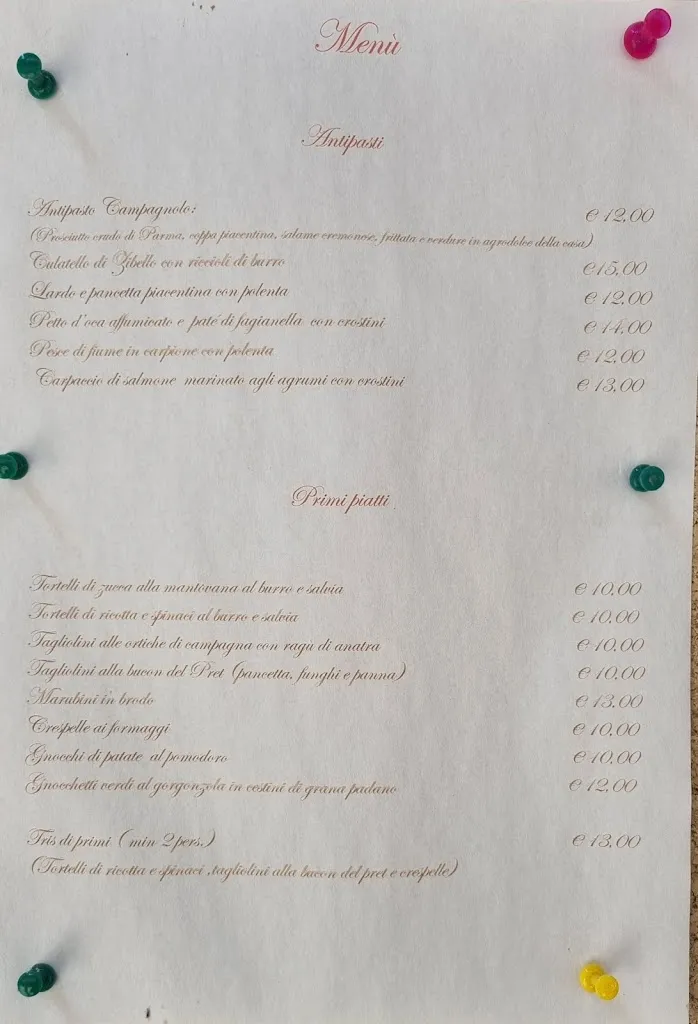 Menù
Antipasti
Antipasto Campagnolo: € 12,00
(Prosciutto crudo di Parma, coppa piacentina, salame cremonese, frittata e verdure in agrodolce della casa)
Culatello di Zibello con riccioli di burro €15,00
Lardo e pancetta piacentina con polenta € 12,00
Petto d'oca affumicato e paté di fagianella con crostini € 14,00
Pesce di fiume in carpione con polenta € 12,00
Carpaccio di salmone marinato agli agrumi con crostini € 13,00
Primi piatti
Tortelli di zucca alla mantovana al burro e salvia € 10,00
Tortelli di ricotta e spinaci al burro e salvia € 10,00
Tagliolini alle ortiche di campagna con ragù di anatra € 10,00
Tagliolini alla bucon del Pret (pancetta, funghi e panna) € 10,00
Marubini in brodo € 13,00
Crespelle ai formaggi € 10,00
Gnocchi di patate al pomodoro € 10,00
Gnocchetti verdi al gorgonzola in cestini di grana padano € 12,00
Tris di primi (min 2 pers.) € 13,00
(Tortelli di ricotta e spinaci ,tagliolini alla bucon del pret e crespelle)